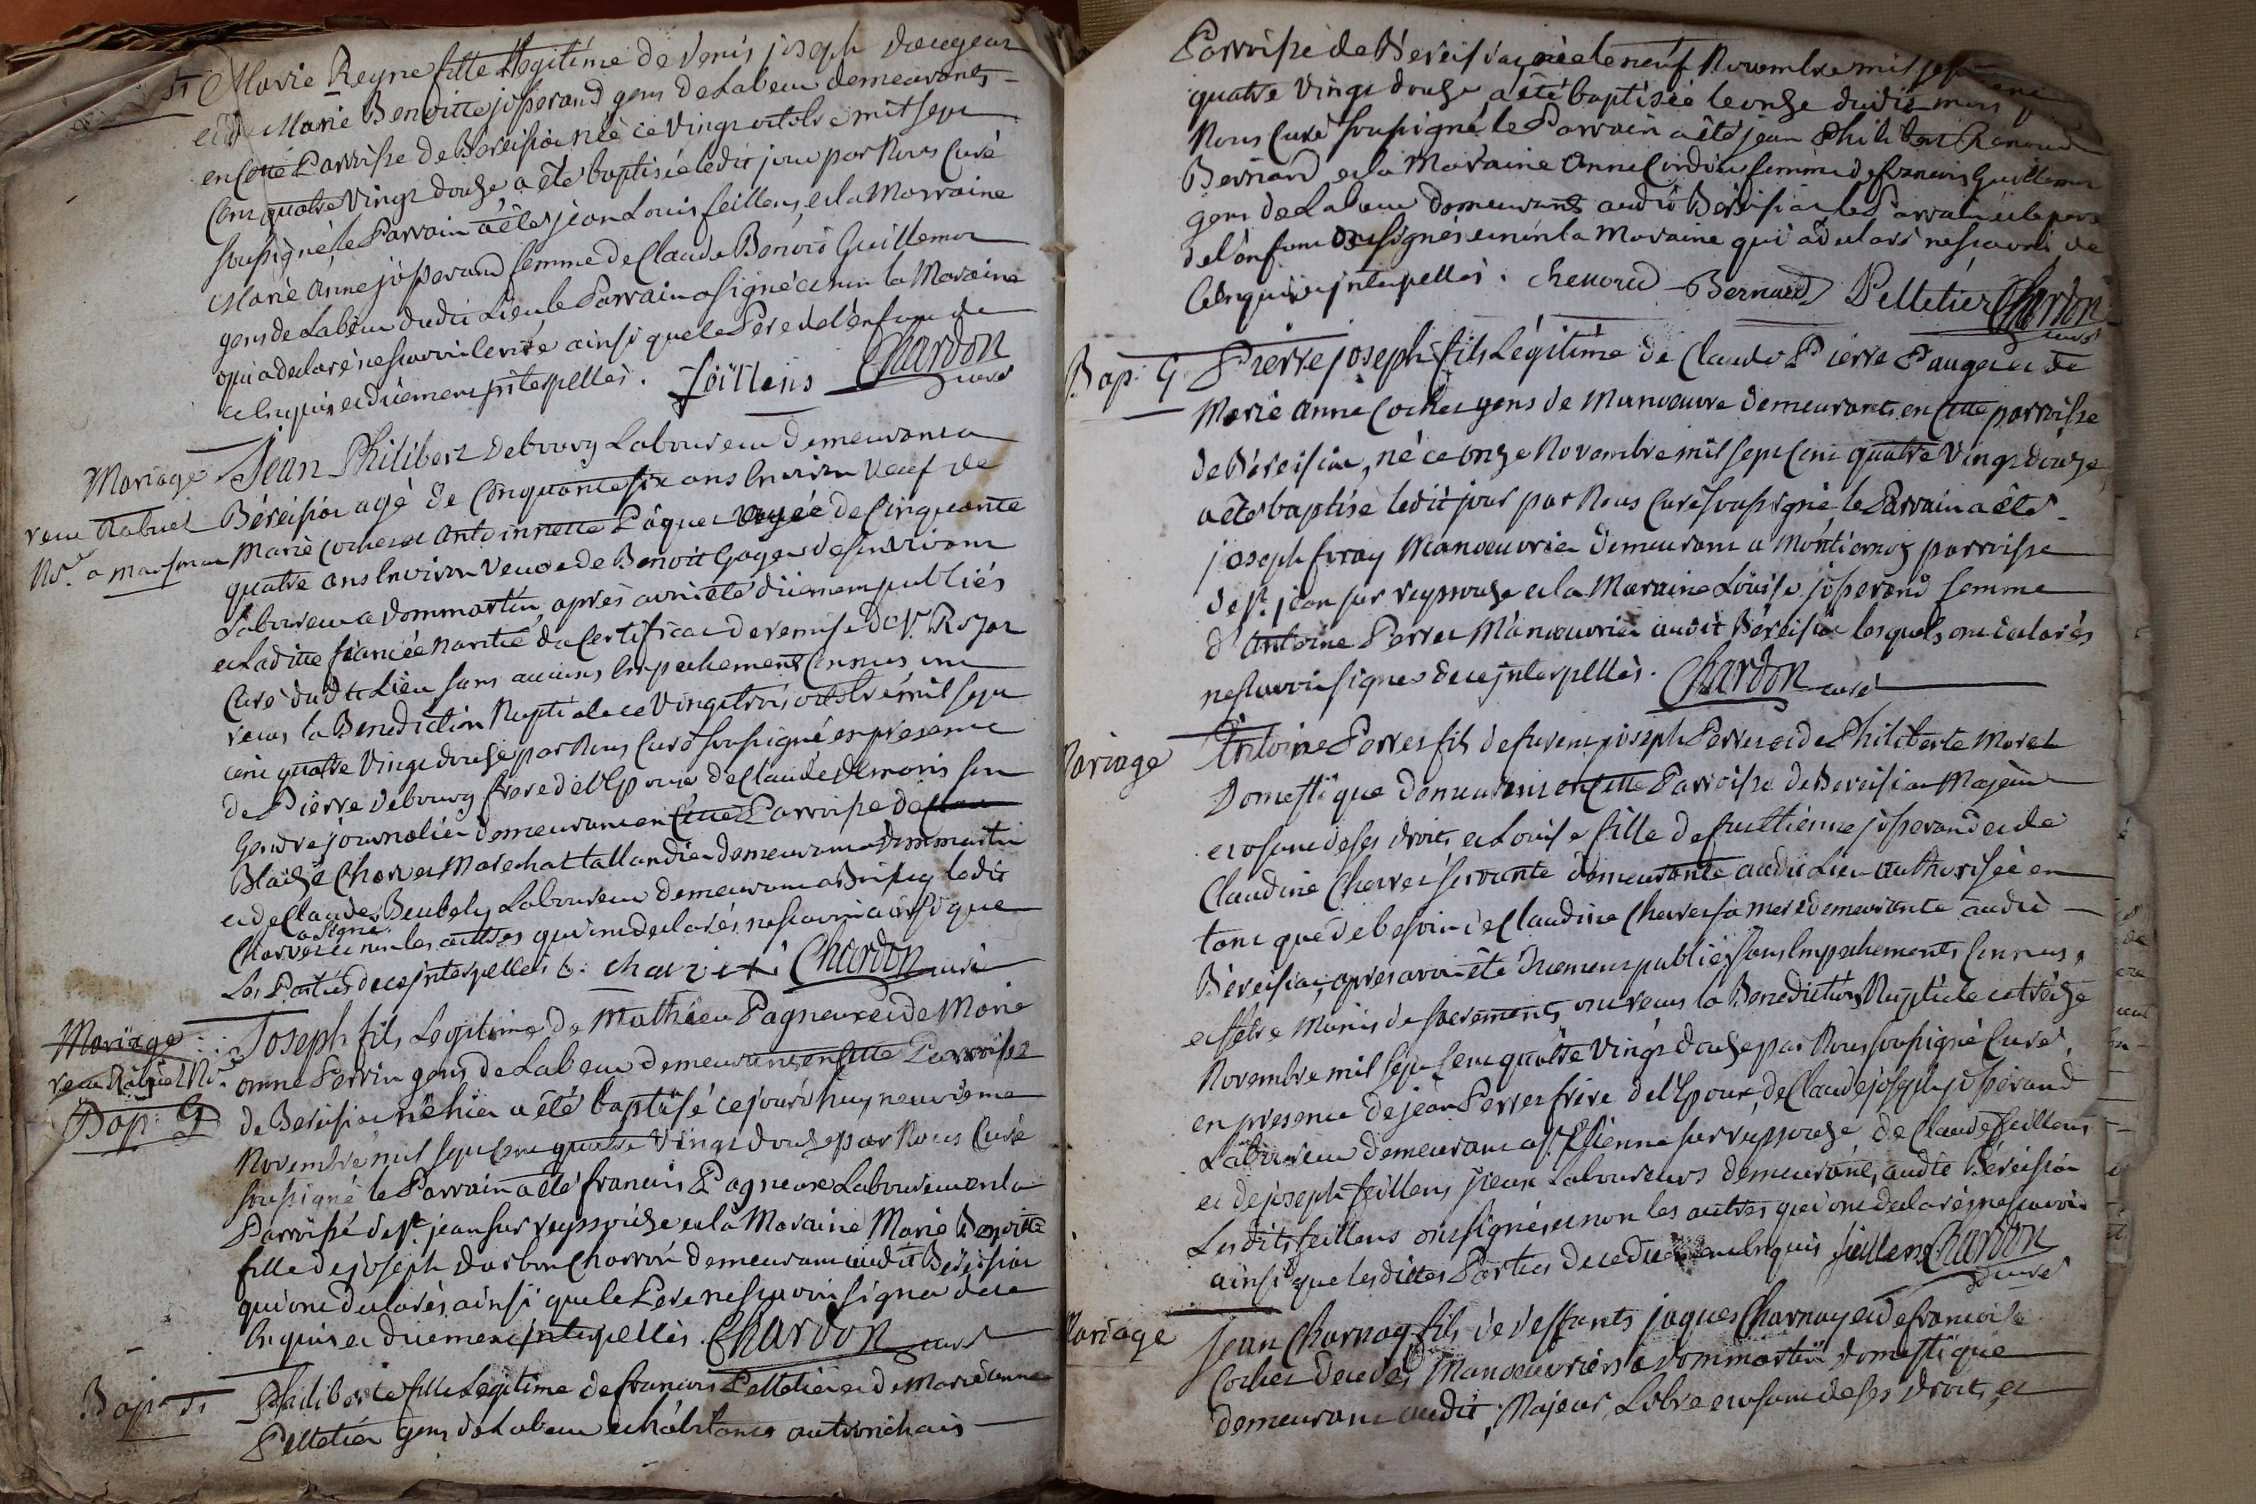 Marie Reyne fille légitime de Denis joseph
et de Marie Benoitte josserand gens de Labeur demeurants
en Cette Parroisse de Béreisia née ce Vingt octobre mil sept
Cent quatre Vingt douze a été baptisée ledit jour par Nous Curé
soussigné, le Parrain a été jean Louis feillens, et la Marraine
Marie Anne josserand femme de Claude Benoit Guillemot
gens de Labeur dudit Lieu le Parrain a signé et non la Maraine
qui a declaré ne scavoir ainsi que le Pere de l'enfant de
ce Enquis et duement interpellés. feillens Chardon
curé
Mariage Jean Philibert Debourg Laboureur demeurant a
Béreisia agé de Cinquante six ans Environ Veuf de
Marie Cochet et Antoinnette Pâquet agée de Cinquante
quatre ans Environ Veuve de Benoit Goyet de son Vivant
Laboureur a Dommartin, après avoir été duement publiés
et Laditte fiancée Nantie du Certificat de remise de Mr. Royer
Curé dudit Lieu sans aucuns Empechements Connus ont
recus la Benediction Nuptiale ce Vingt trois octobre mil sept
cent quatre Vingt douze par Nous Curé soussigné en presence
de Pierre Debourg frere de l'Epoux de Claude son
Gendre journalier demeurant en Cette Parroisse de
Blaise Charvet Marechal tallandier demeurant a Dommartin
et de Claude Beubely Laboureur demeurant a ledit
a signé
Charvet et non les autres qui ont declarés ne scavoir ainsi que
Les Parties de ce interpellés. charvet Chardon curé
Mariage Joseph fils Legitime de Mathieu Pagneux et de Marie
Bap: G anne Perrin gens de Labeur demeurants en Cette Parroisse
de Bereisia né hier a été baptisé ce jourd'huy neuvieme
Novembre mil sept Cent quatre Vingt douze par Nous Curé
soussigné le Parrain a été francois Pagneux Laboureur en la
Parroisse de St. jean sur reyssouze et la Maraine Marie Benoitte
fille de joseph Darbon Charron demeurant audit Béreisia
qui ont declarés ainsi que le Pere ne scavoir signer de ce
Enquis et duement interpellés. Chardon curé
Bap: Philiberte fille Legitime de francois Pelletier et de Marie Anne
Pelletier gens de Labeur et habitants
Parroisse de Béreisia, née le neuf Novembre mil sept
quatre Vingt douze a été baptisée le onze dudit mois
Nous Curé soussigné, le Parrain a été jean Philibert
Bernard et la Maraine Anne femme de francois Guillemot
gens de Labeur demeurants audit Béreisia le Parrain et le pere
de l'enfant signés et non la Maraine qui a declaré ne scavoir de
ce Enquise interpellés. chenoud Bernard Pelletier Chardon
curé
Bap: G Pierre joseph fils Légitime de Claude Pierre Pauget et de
Marie Anne Cochet gens de Manoeuvre demeurants en Cette parroisse
de Béreisia, né ce onze Novembre mil sept Cent quatre Vingt douze
a été baptisé ledit jour par Nous Curé soussigné le Parrain a été
joseph Manoeuvrier demeurant a Montiernoz parroisse
de St. jean sur reyssouze et la Maraine Louise josserand femme
d'Antoine Perret Manoeuvrier audit Béreisia lesquels ont declarés
ne scavoir signer de ce interpellés. Chardon curé
Mariage Antoine Perret fils de furent joseph Perret et de Philiberte Morel
Domestique demeurant en Cette Parroisse de Bereisia Majeur
et usant de ses droits et Louise fille de fut Etienne josserand et de
Claudine Charvet servante demeurante audit Lieu authorisée en
tant que de besoin de Claudine Charvet sa mere demeurante audit
Béreisia, apres avoir été duement publiés sans Empechements Connus,
et s'etre Munis de sacrements, ont recus la Benediction Nuptiale ce treize
Novembre mil sept Cent quatre Vingt douze par Nous soussigné Curé
en presence de jean Perret frère de l'Epoux, de Claude joseph josserand
Laboureur demeurant a St. Etienne sur reyssouze, de Claude feillens
et de joseph feillens Laboureurs demeurants audit Béreisia
Lesdits feillens ont signés et non les autres qui ont declarés ne scavoir
ainsi que lesdittes Parties de ce Enquis feillens Chardon
curé
Mariage Jean Charnay fils de deffunts jaques Charnay et de francoise
Cochet decedés Manoeuvriers a Dommartin, domestique
demeurant audit, Majeur, Libre et usant de ses droits, et